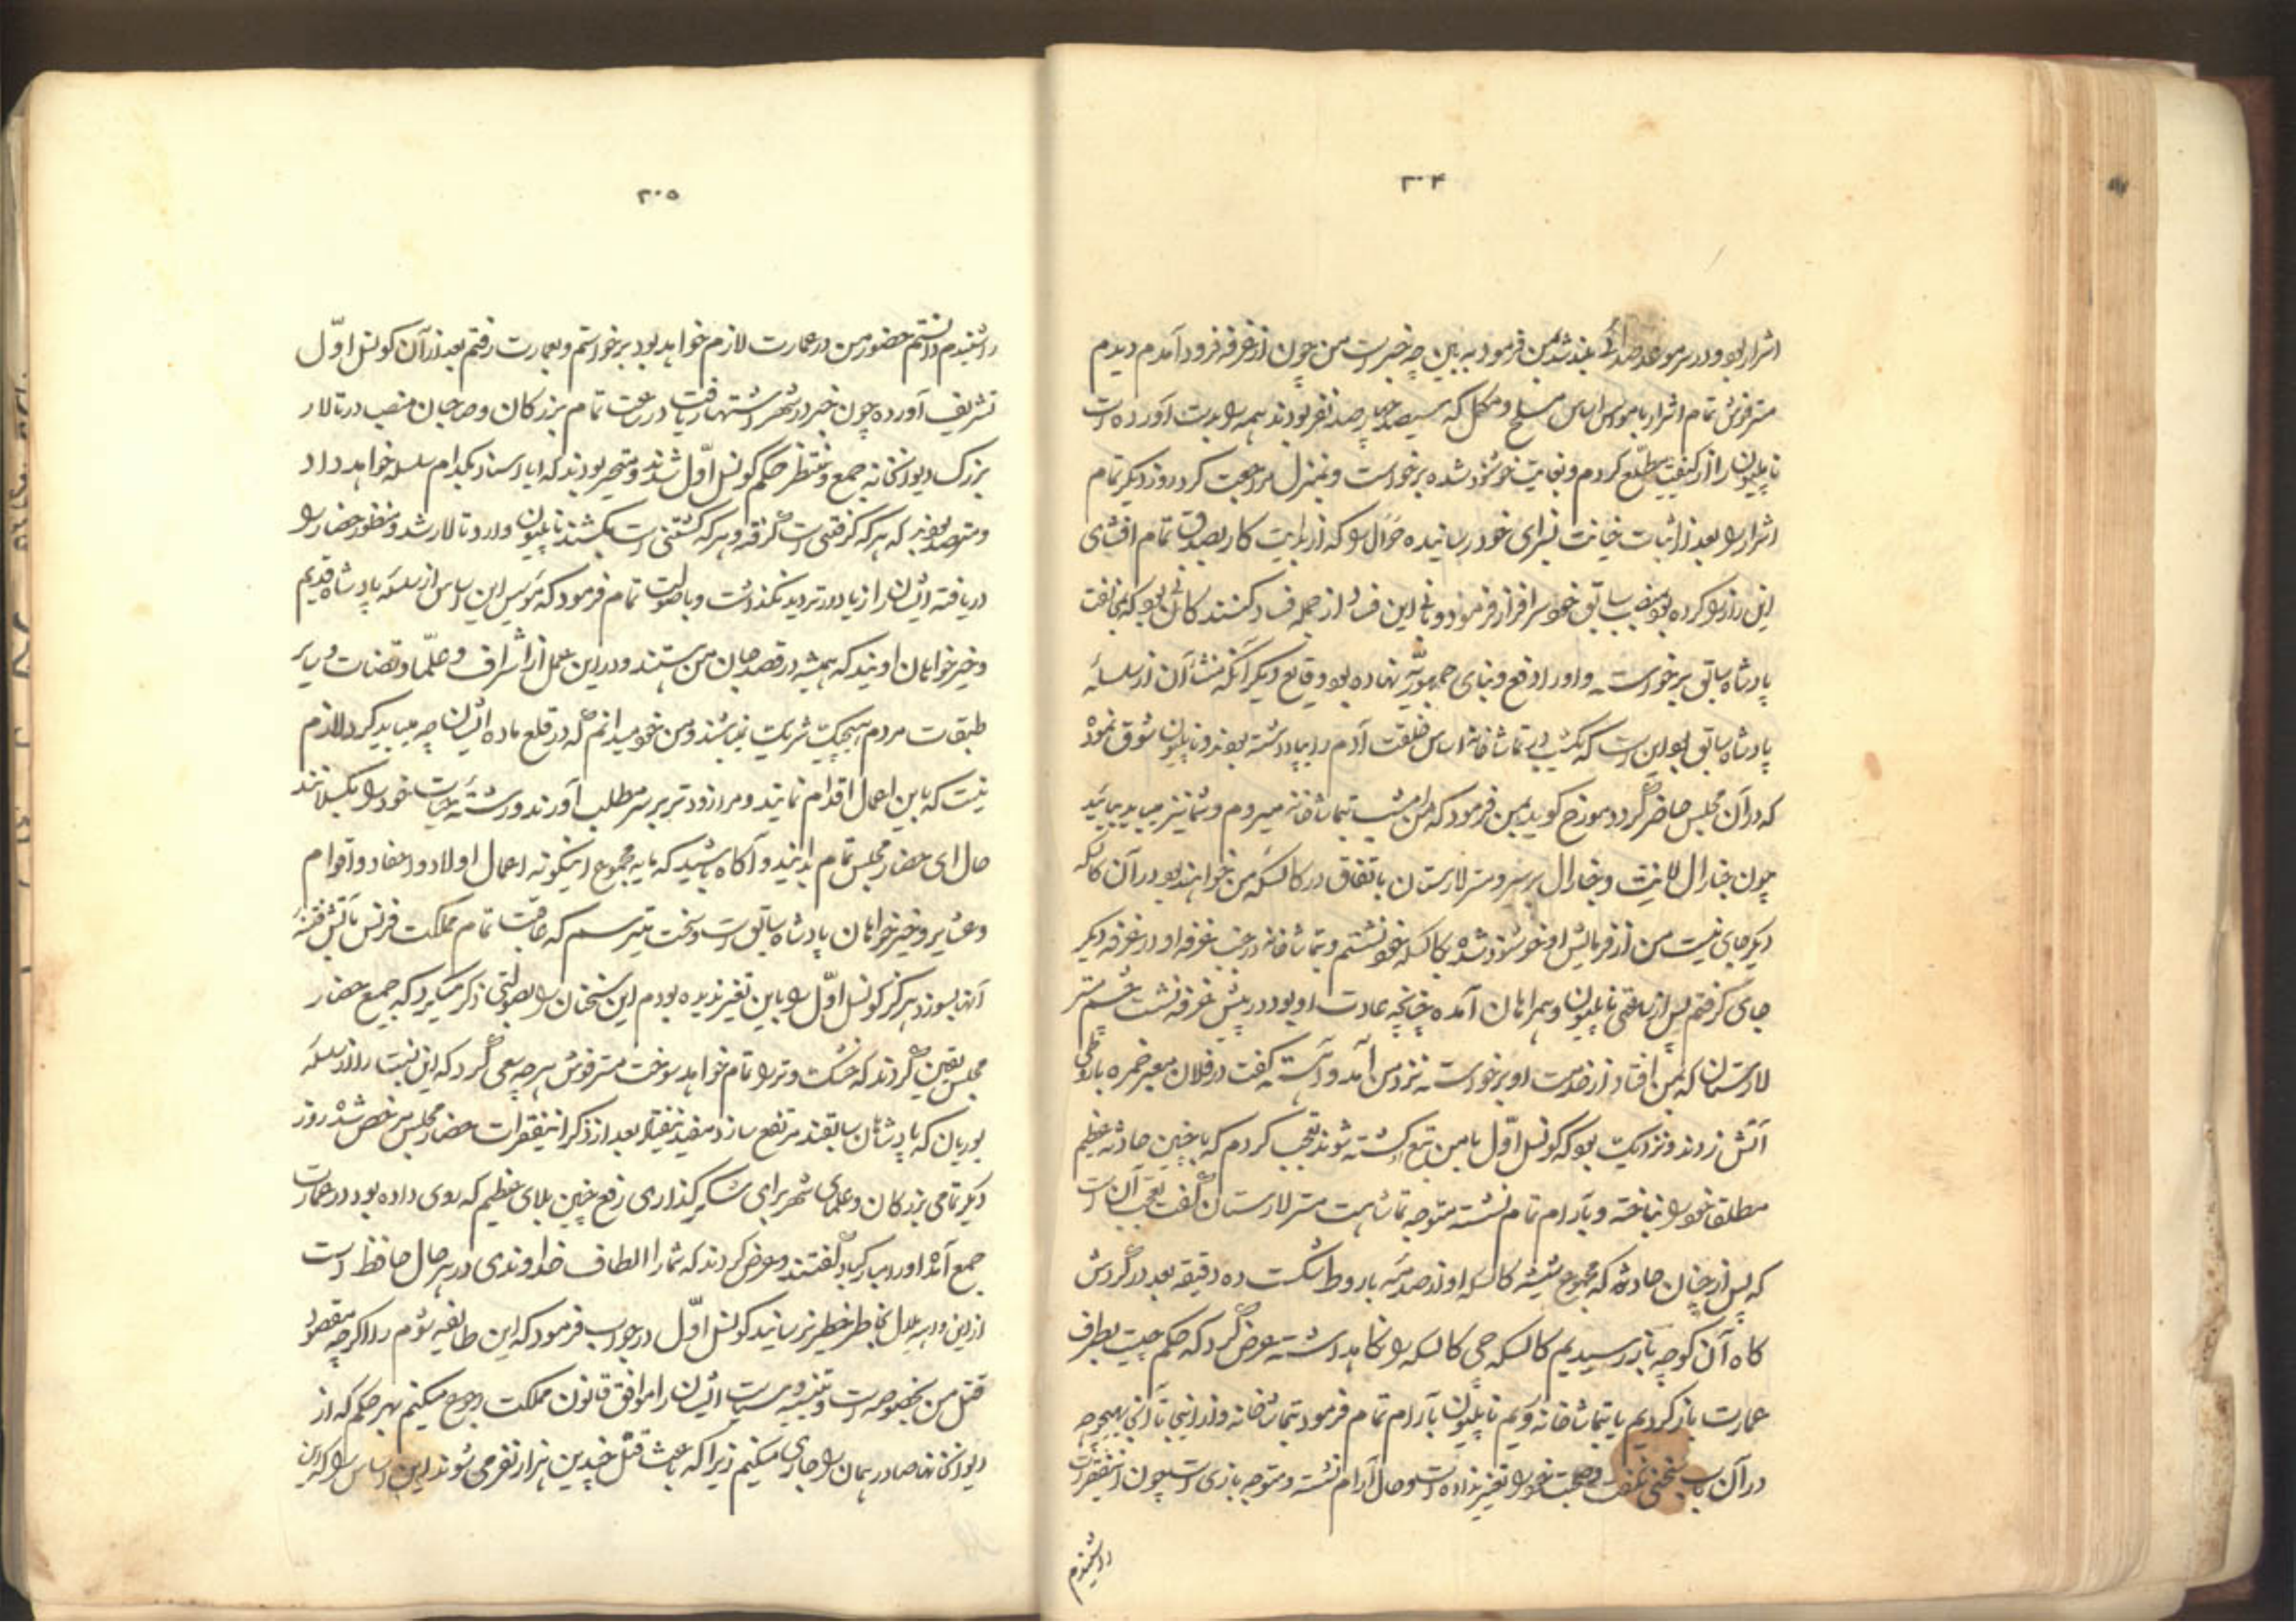 ۳۰۴
اشرار بود و در سر موعد صدائی بلند شد بمن فرمود به بین چه خبر است من چون از غرفه فرود آمدم دیدم
مترفوش تمام اشرار با مواس اساس مسلح و مکمل که سیصد چهارصد نفر بودند همه را بدست آورده است
ناپلیون را از کیفیت مطلع کردم و بغایت خوشنود شده برخواست و بمنزل مراجعت کرد روز دیگر تمام
اشرار را بعد از اثبات خیانت بسزای خود رسانیده را که از بدایت کار بصداقت تمام افشای
این راز را کرده بود بمنصب سابق خود سرافراز فرمود و این فساد از جمله فساد کسانی بود که بمخالفت
پادشاه سابق برخواسته و او را دفع و بنای جمهوریه نهاده بود و قایع دیگر آنکه منشأ آن از سلسله
پادشاه سابق بود این است که یکشب در تماشاخانه اساس خلقت آدم را بپا داشته بودند و ناپلیون شوق نموده
که در آن مجلس حاضر گردد مورخ گوید بمن فرمود که من امشب بتماشاخانه میروم و شما نیز میباید بیائید
چون جنارال لانیت و جنارال برسر و متر لارستان باتفاق در کالسکه من خواهند بود در آن کالسکه
دیگر جای نیست من از فرمایش او خوشنود شده بکالسکه خود نشستم و بتماشاخانه در جنب غرفه او در غرفه دیگر
جای گرفتم پس از ساعتی ناپلیون و همراهان آمده چنانچه عادت او بود در پیش غرفه نشست چشم متر
لارستان که بمن افتاد از خدمت او برخواسته نزد من آمد و آهسته گفت در فلان معبر خمره باروطی
آتش زدند و نزدیک بود که کونسل اول با من تبع کشته شوند تعجب کردم که با چنین حادثه عظیم
مطلقا خود را نباخته و بآرام تمام نشسته متوجه تماشا هست متر لارستان گفت تعجب آن است
که پس از چنان حادثه که مجموع شیشه کالسکه او از صدمه باروط شکست ده دقیقه بعد در گردش
گاه آن کوچه باز رسیدیم کالسکه چی کالسکه را نگاهداشته عرض کرد که حکم چیست بطرف
عمارت باز گردیم یا بتماشاخانه رویم ناپلیون بآرام تمام فرمود بتماشاخانه و از اینجا تا آنجا بهیچوجه
در آن باب سخنی نگفت و صحبت خود را تغییر نداده است و حال آرام نشسته و متوجه بازی است چون اینفقرات
را شنیدم
۳۰۵
را شنیدم دانستم حضور من در عمارت لازم خواهد بود برخواستم و بعمارت رفتم بعد از آن کونسل اول
تشریف آورده چون خبر در شهر اشتهار یافت در ساعت تمام بزرگان و صاحبان منصب در تالار
بزرگ دیوانخانه جمع و منتظر حکم کونسل اول شدند و متحیر بودند که آیا اسناد بکدام سلسله خواهد داد
و مترصد بودند که هر که گرفتنی است گرفته و هر که کشتنی است بکشند ناپلیون وارد تالار شد و منظور حضار را
دریافته ایشان را زیاده در تردید نگذاشت و با صولت تمام فرمود که مؤسس این اساس از سلسله پادشاه قدیم
و خیرخواهان اویند که همیشه در قصد جان من هستند و در این عمل از اشراف و علما و قضات و سایر
طبقات مردم هیچیک شریک نمیباشند و من خود میدانم که در قلع ماده ایشان چه میباید کرد لازم
نیست که باین اعمال اقدام نمایند و مرا زودتر بر سر مطلب آورند و رشته حیات خود را بگسلانند
حال ای حضار مجلس تمام بدانید و آگاه باشید که مایه مجموع اینگونه اعمال اولاد و احفاد و اقوام
و عشایر و خیرخواهان پادشاه سابق است و سخت میترسم که عاقبت تمام مملکت فرنس بآتش فتنه
آنها بسوزد هرگز کونسل اول را باین تغیر ندیده بودم این سخنان را بصولتی ذکر میکرد که جمیع حضار
مجلس یقین کردند که خشک و تر را تمام خواهد سوخت مترفوش هر چه سعی کرد که این نسبت را از سلسله
بوریان که پادشاهان سابقند مرتفع سازد مفید نیفتاد بعد از ذکر اینفقرات حضار مجلس مرخص شده روز
دیگر تمامی بزرگان و علمای شهر برای شکرگذاری رفع چنین بلای عظیم که روی داده بود در عمارت
جمع آمده او را مبارکباد گفتند و عرض کردند که شما را الطاف خداوندی در هر حال حافظ است
از این واهمه ملال بخاطر خطیر نرسانید کونسل اول در جواب فرمود که این طایفه شوم را اگر چه مقصود
قتل من بخصوصه است و تنبیه و سیاست ایشان را موافق قانون مملکت رجوع میکنیم بهر حکم که از
دیوانخانها صادر همان را جاری میکنیم زیرا که باعث قتل چندین هزار نفر می شوند این اساس را که در این